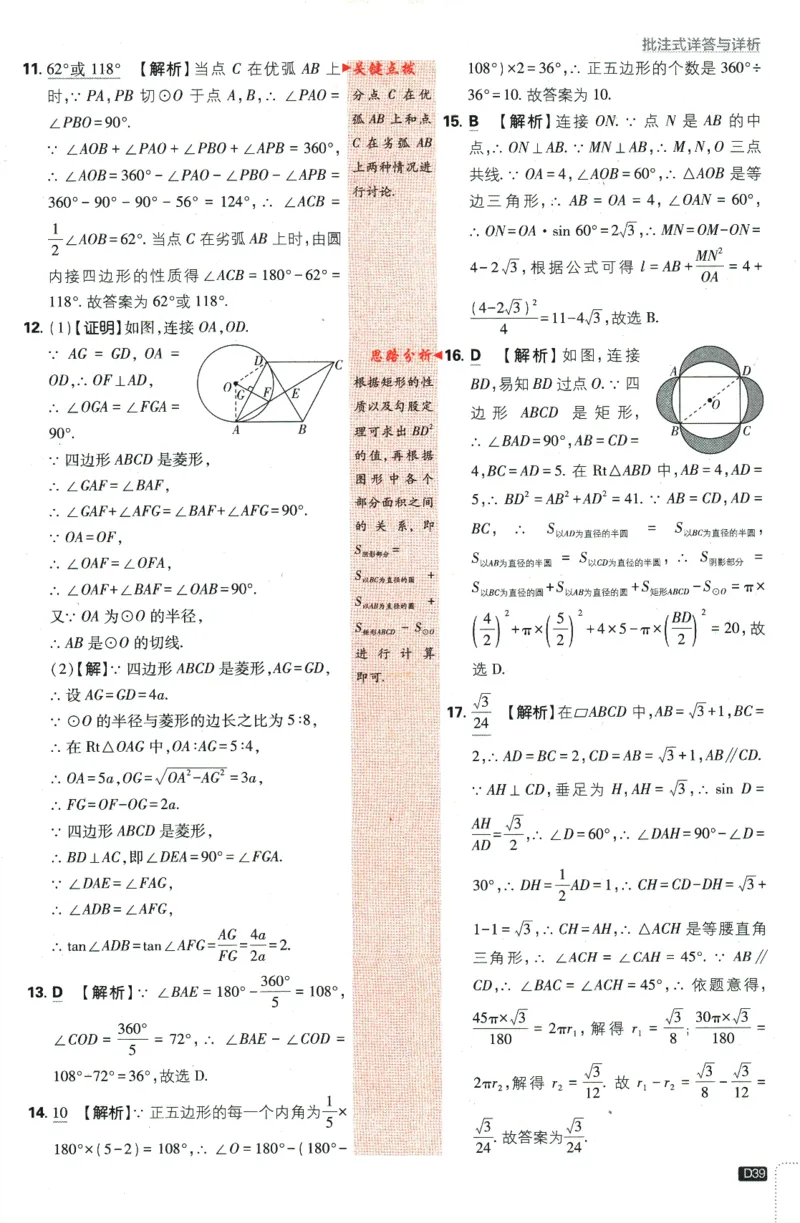 批注式详答与详析
11. 62°或 118° 【解析】当点 C 在优弧 AB 上
时,∵ PA,PB 切⊙O 于点 A,B,∴ ∠PAO=
∠PBO=90°.
∵ ∠AOB+∠PAO+∠PBO+∠APB=360°,
∴ ∠AOB=360°-∠PAO-∠PBO-∠APB=
360°-90°-90°-56°=124°,∴ ∠ACB=
1/2∠AOB=62°. 当点 C 在劣弧 AB 上时,由圆
内接四边形的性质得∠ACB=180°-62°=
118°. 故答案为 62°或 118°.
12. (1)【证明】如图,连接 OA,OD.
∵ AG = GD, OA =
OD,∴ OF⊥AD,
∴ ∠OGA=∠FGA=
90°.
D
C
O
G
F
E
A
B
∵ 四边形 ABCD 是菱形,
∴ ∠GAF=∠BAF,
∴ ∠GAF+∠AFG=∠BAF+∠AFG=90°.
∵ OA=OF,
∴ ∠OAF=∠OFA,
∴ ∠OAF+∠BAF=∠OAB=90°.
又∵ OA 为⊙O 的半径,
∴ AB 是⊙O 的切线.
(2)【解】∵ 四边形 ABCD 是菱形,AG=GD,
∴ 设 AG=GD=4a.
∵ ⊙O 的半径与菱形的边长之比为 5∶8,
∴ 在 Rt△OAG 中,OA∶AG=5∶4,
∴ OA=5a,OG=√(OA²-AG²)=3a,
∴ FG=OF-OG=2a.
∵ 四边形 ABCD 是菱形,
∴ BD⊥AC,即∠DEA=90°=∠FGA.
∵ ∠DAE=∠FAG,
∴ ∠ADB=∠AFG,
∴ tan∠ADB=tan∠AFG=AG/FG=4a/2a=2.
13. D 【解析】∵ ∠BAE=180°-360°/5=108°,
∠COD=360°/5=72°,∴ ∠BAE-∠COD=
108°-72°=36°,故选 D.
14. 10 【解析】∵ 正五边形的每一个内角为1/5×
180°×(5-2)=108°,∴ ∠O=180°-(180°-
关键点拨
分点 C 在优
弧 AB 上和点
C 在劣弧 AB
上两种情况进
行讨论.
思路分析
根据矩形的性
质以及勾股定
理可求出 BD²
的值,再根据
图形中各个
部分面积之间
的关系,即
S阴影部分=
S以BC为直径的圆 +
S以AB为直径的圆 +
S矩形ABCD - S⊙O
进行计算
即可.
108°)×2=36°,∴ 正五边形的个数是 360°÷
36°=10. 故答案为 10.
15. B 【解析】连接 ON. ∵ 点 N 是 AB 的中
点,∴ ON⊥AB. ∵ MN⊥AB,∴ M,N,O 三点
共线. ∵ OA=4,∠AOB=60°,∴ △AOB 是等
边三角形,∴ AB=OA=4,∠OAN=60°,
∴ ON=OA·sin 60°=2√3,∴ MN=OM-ON=
4-2√3,根据公式可得 l=AB+MN²/OA=4+
(4-2√3)²/4=11-4√3,故选 B.
16. D 【解析】如图,连接
BD,易知 BD 过点 O. ∵ 四
边形 ABCD 是矩形,
∴ ∠BAD=90°,AB=CD=
A
D
O
B
C
4,BC=AD=5. 在 Rt△ABD 中,AB=4,AD=
5,∴ BD²=AB²+AD²=41. ∵ AB=CD,AD=
BC, ∴ S以AD为直径的半圆 = S以BC为直径的半圆,
S以AB为直径的半圆 = S以CD为直径的半圆,∴ S阴影部分 =
S以BC为直径的圆+S以AB为直径的圆+S矩形ABCD-S⊙O=π×
(4/2)²+π×(5/2)²+4×5-π×(BD/2)²=20,故
选 D.
17. √3/24 【解析】在▱ABCD 中,AB=√3+1,BC=
2,∴ AD=BC=2,CD=AB=√3+1,AB∥CD.
∵ AH⊥CD,垂足为 H,AH=√3,∴ sin D=
AH/AD=√3/2,∴ ∠D=60°,∴ ∠DAH=90°-∠D=
30°,∴ DH=1/2AD=1,∴ CH=CD-DH=√3+
1-1=√3,∴ CH=AH,∴ △ACH 是等腰直角
三角形,∴ ∠ACH=∠CAH=45°. ∵ AB∥
CD,∴ ∠BAC=∠ACH=45°,∴ 依题意得,
45π×√3/180=2πr₁,解得 r₁=√3/8;30π×√3/180=
2πr₂,解得 r₂=√3/12. 故 r₁-r₂=√3/8-√3/12=
√3/24. 故答案为√3/24.
D39